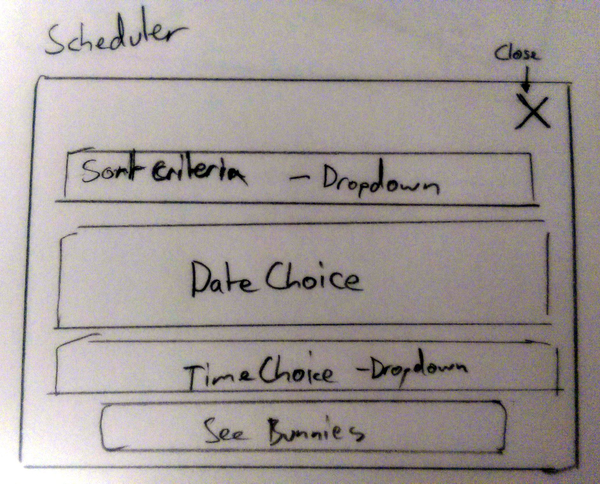 Scheduler
Close
X
Sort Criteria - Dropdown
Date Choice
Time Choice - Dropdown
See Bunnies